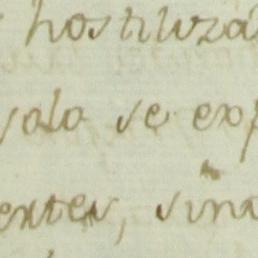 hostiliza
solo se exp
entes, sino